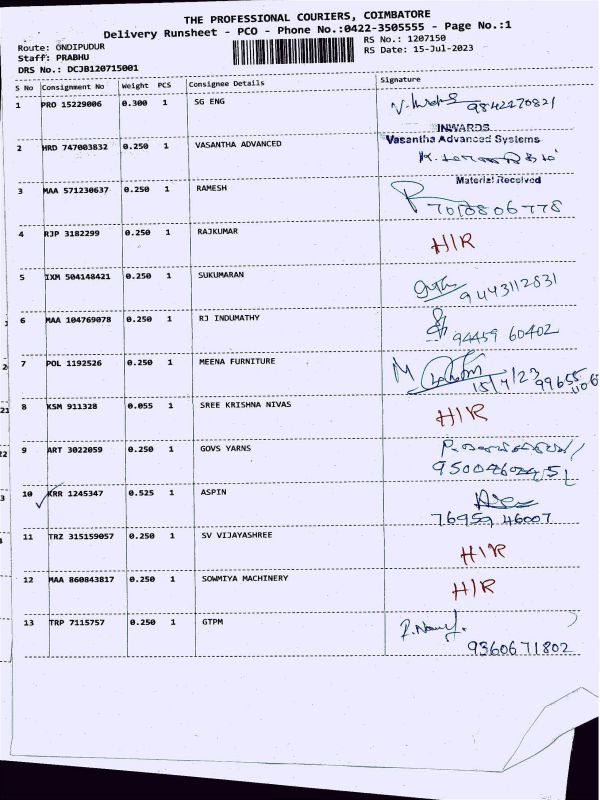 THE PROFESSIONAL COURIERS, COIMBATORE
Delivery Runsheet - PCO - Phone No.:0422-3505555 - Page No.:1
Route: ONDIPUDUR
RS No.: 1207150
Staff: PRABHU
RS Date: 15-Jul-2023
DRS No.: DCJB120715001
S No Consignment No Weight PCS Consignee Details Signature
1 PRO 15229006 0.300 1 SG ENG 9842270821
INWARDS
2 HRD 747003832 0.250 1 VASANTHA ADVANCED Vasantha Advanced Systems
Material Received
3 MAA 571230637 0.250 1 RAMESH 7010806778
4 RJP 3182299 0.250 1 RAJKUMAR HIR
5 IXM 504148421 0.250 1 SUKUMARAN 9443112831
6 MAA 104769078 0.250 1 RJ INDUMATHY 94459 60402
7 POL 1192526 0.250 1 MEENA FURNITURE M 15/7/23 99655
8 KSM 911328 0.055 1 SREE KRISHNA NIVAS HIR
9 ART 3022059 0.250 1 GOVS YARNS
10 KRR 1245347 0.525 1 ASPIN 76959 46007
11 TRZ 315159057 0.250 1 SV VIJAYASHREE HIR
12 MAA 860843817 0.250 1 SOWMIYA MACHINERY HIR
13 TRP 7115757 0.250 1 GTPM 9360671802